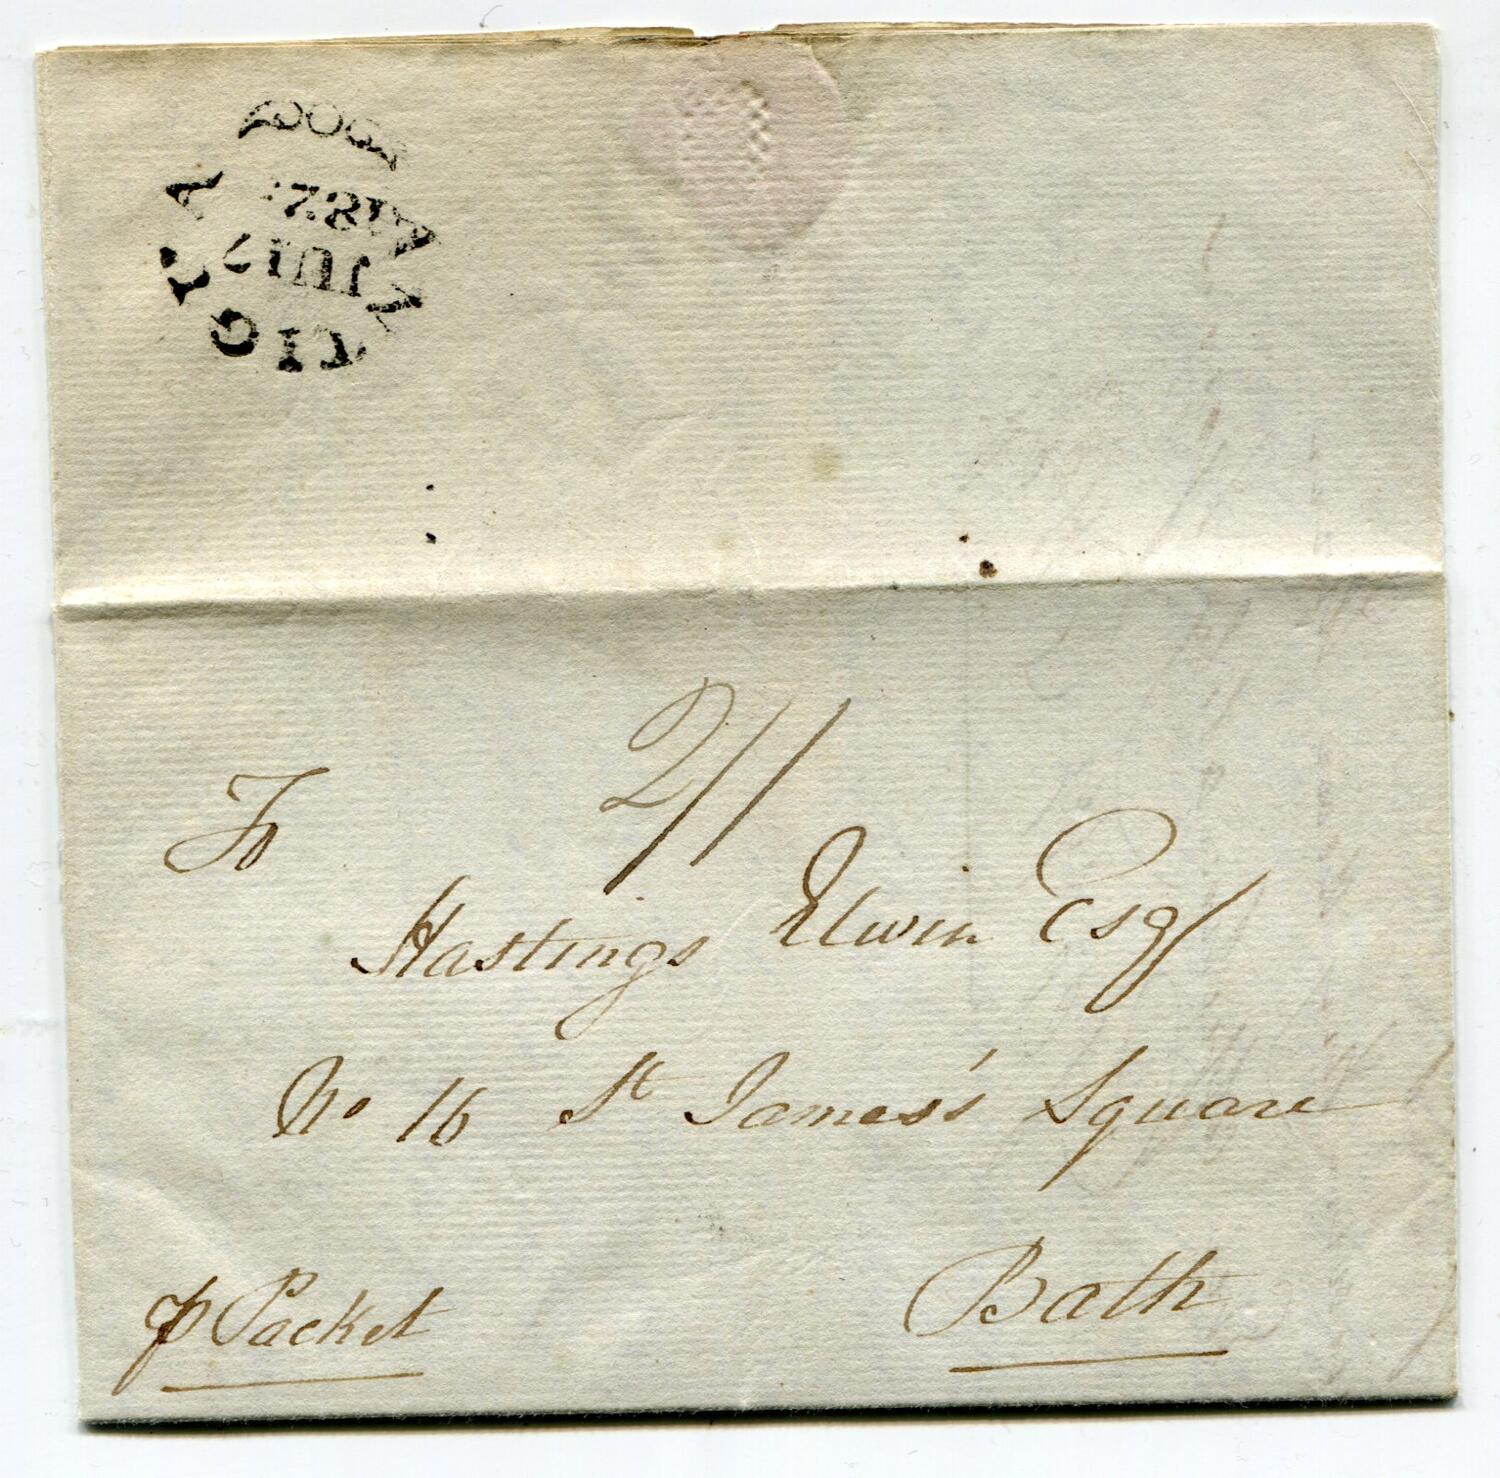 ANTIGUA
JU 17
182
2/1
To
Hastings Elwin Esqr
No 16 St James's Square
Bath
p Packet